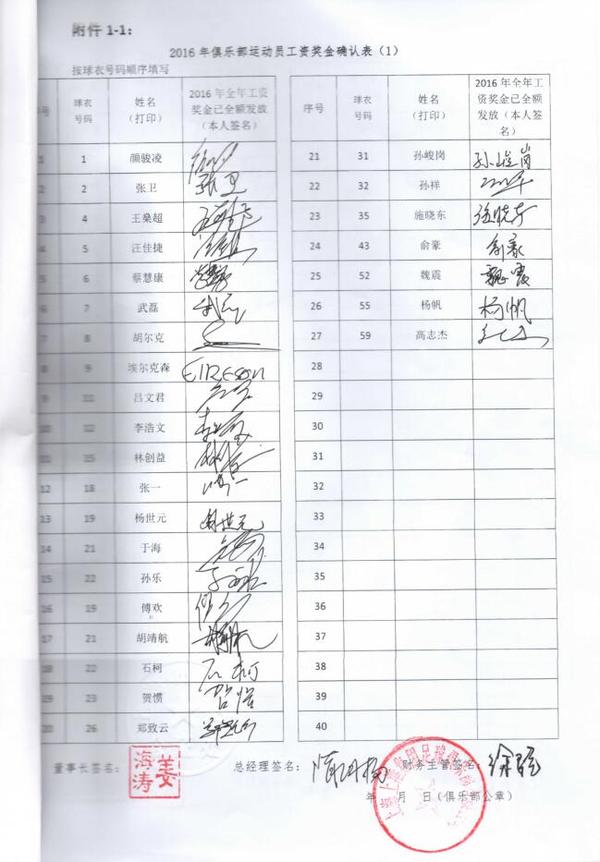 附件 1-1:
2016 年俱乐部运动员工资奖金确认表（1）
按球衣号码顺序填写
序号 球衣号码 姓名（打印） 2016 年全年工资奖金已全额发放（本人签名）
1 1 颜骏凌
2 2 张卫 张卫
3 4 王燊超
4 5 汪佳捷
5 6 蔡慧康
6 7 武磊 武磊
7 8 胡尔克
8 9 埃尔克森 ElKESON
9 11 吕文君
10 12 李浩文
11 15 林创益
12 18 张一
13 19 杨世元 杨世元
14 21 于海
15 22 孙乐
16 19 傅欢
17 21 胡靖航
18 22 石柯 石柯
19 23 贺惯 贺惯
20 26 郑致云 郑致云
序号 球衣号码 姓名（打印） 2016 年全年工资奖金已全额发放（本人签名）
21 31 孙峻岗 孙峻岗
22 32 孙祥
23 35 施晓东 施晓东
24 43 俞豪 俞豪
25 52 魏震 魏震
26 55 杨帆 杨帆
27 59 高志杰
28
29
30
31
32
33
34
35
36
37
38
39
40
董事长签名： 姜海涛 总经理签名： 财务主管签名：
年 月 日（俱乐部公章）